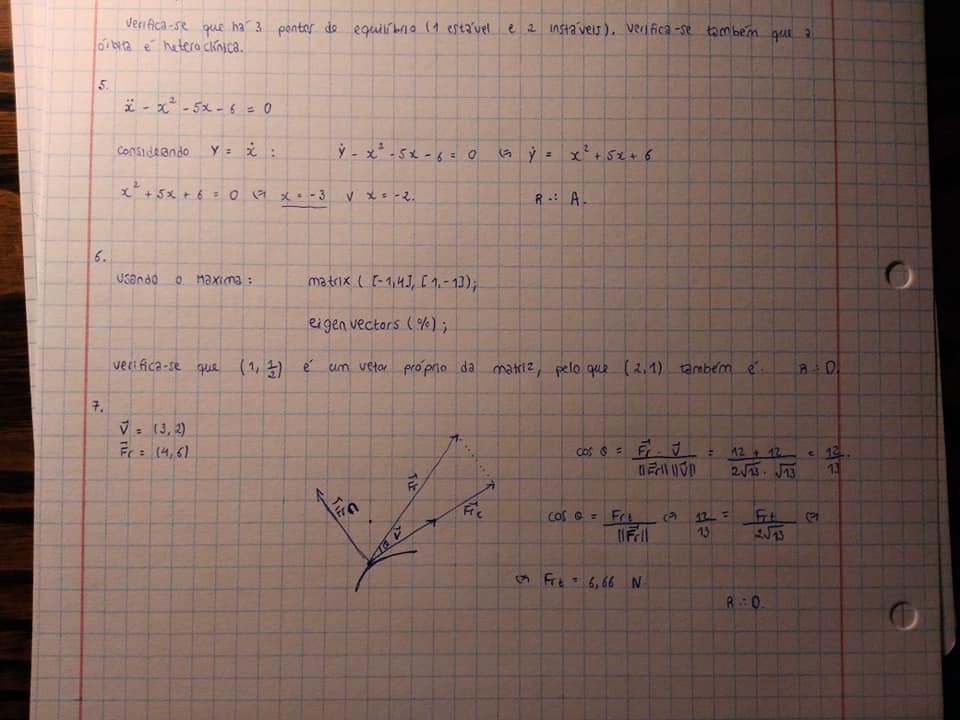 verifica-se que há 3 pontos de equilíbrio (1 estável e 2 instáveis). Verifica-se também que a
órbita é heteroclínica.
5.
ẍ - x² - 5x - 6 = 0
considerando y = ẋ : ẏ - x² - 5x - 6 = 0 ⇔ ẏ = x² + 5x + 6
x² + 5x + 6 = 0 ⇔ x = -3 ∨ x = -2. R.: A.
6.
usando o maxima: matrix ( [-1,4], [1,-1]);
eigenvectors (%);
verifica-se que (1, 1/2) é um vetor próprio da matriz, pelo que (2,1) também é. R.: D.
7.
v⃗ = (3,2)
F⃗r = (4,6)
cos θ = F⃗r · v⃗ / ||F⃗r|| ||v⃗|| = 12 + 12 / 2√13 · √13 = 12 / 13.
F⃗r
F⃗rn
F⃗rt
θ
v⃗
cos θ = Frt / ||F⃗r|| ⇔ 12/13 = Frt / 2√13 ⇔
⇔ Frt = 6,66 N.
R.: D.